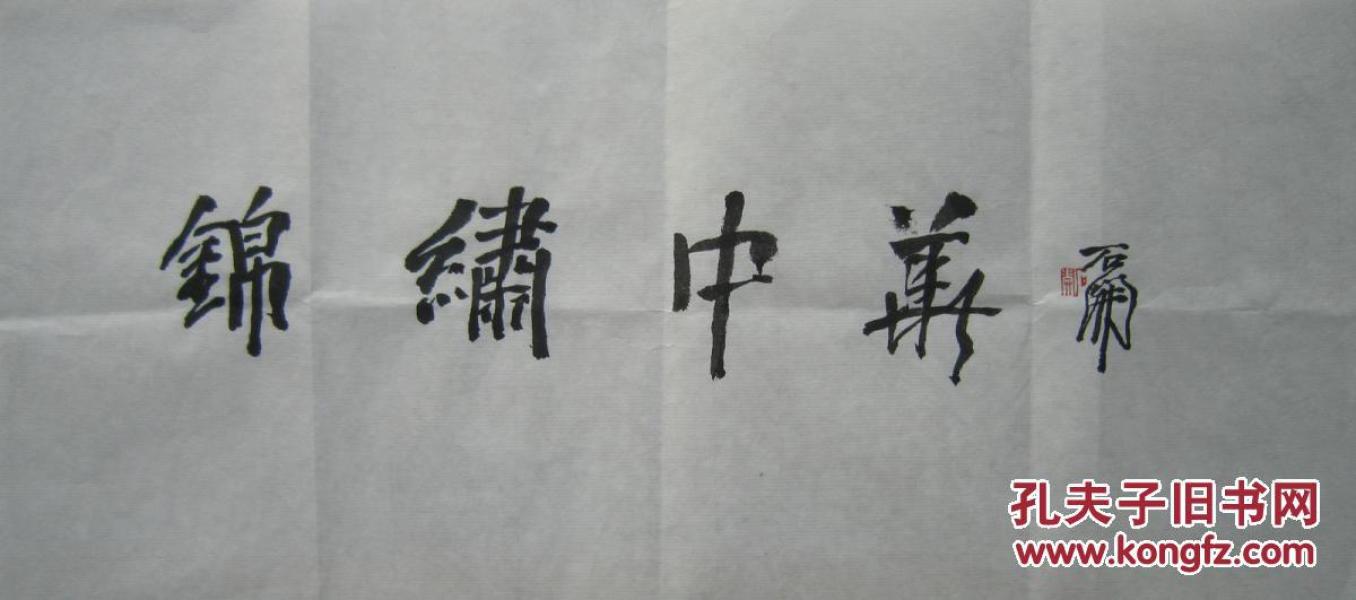 錦繡中華
石開
石開
孔夫子旧书网
www.kongfz.com